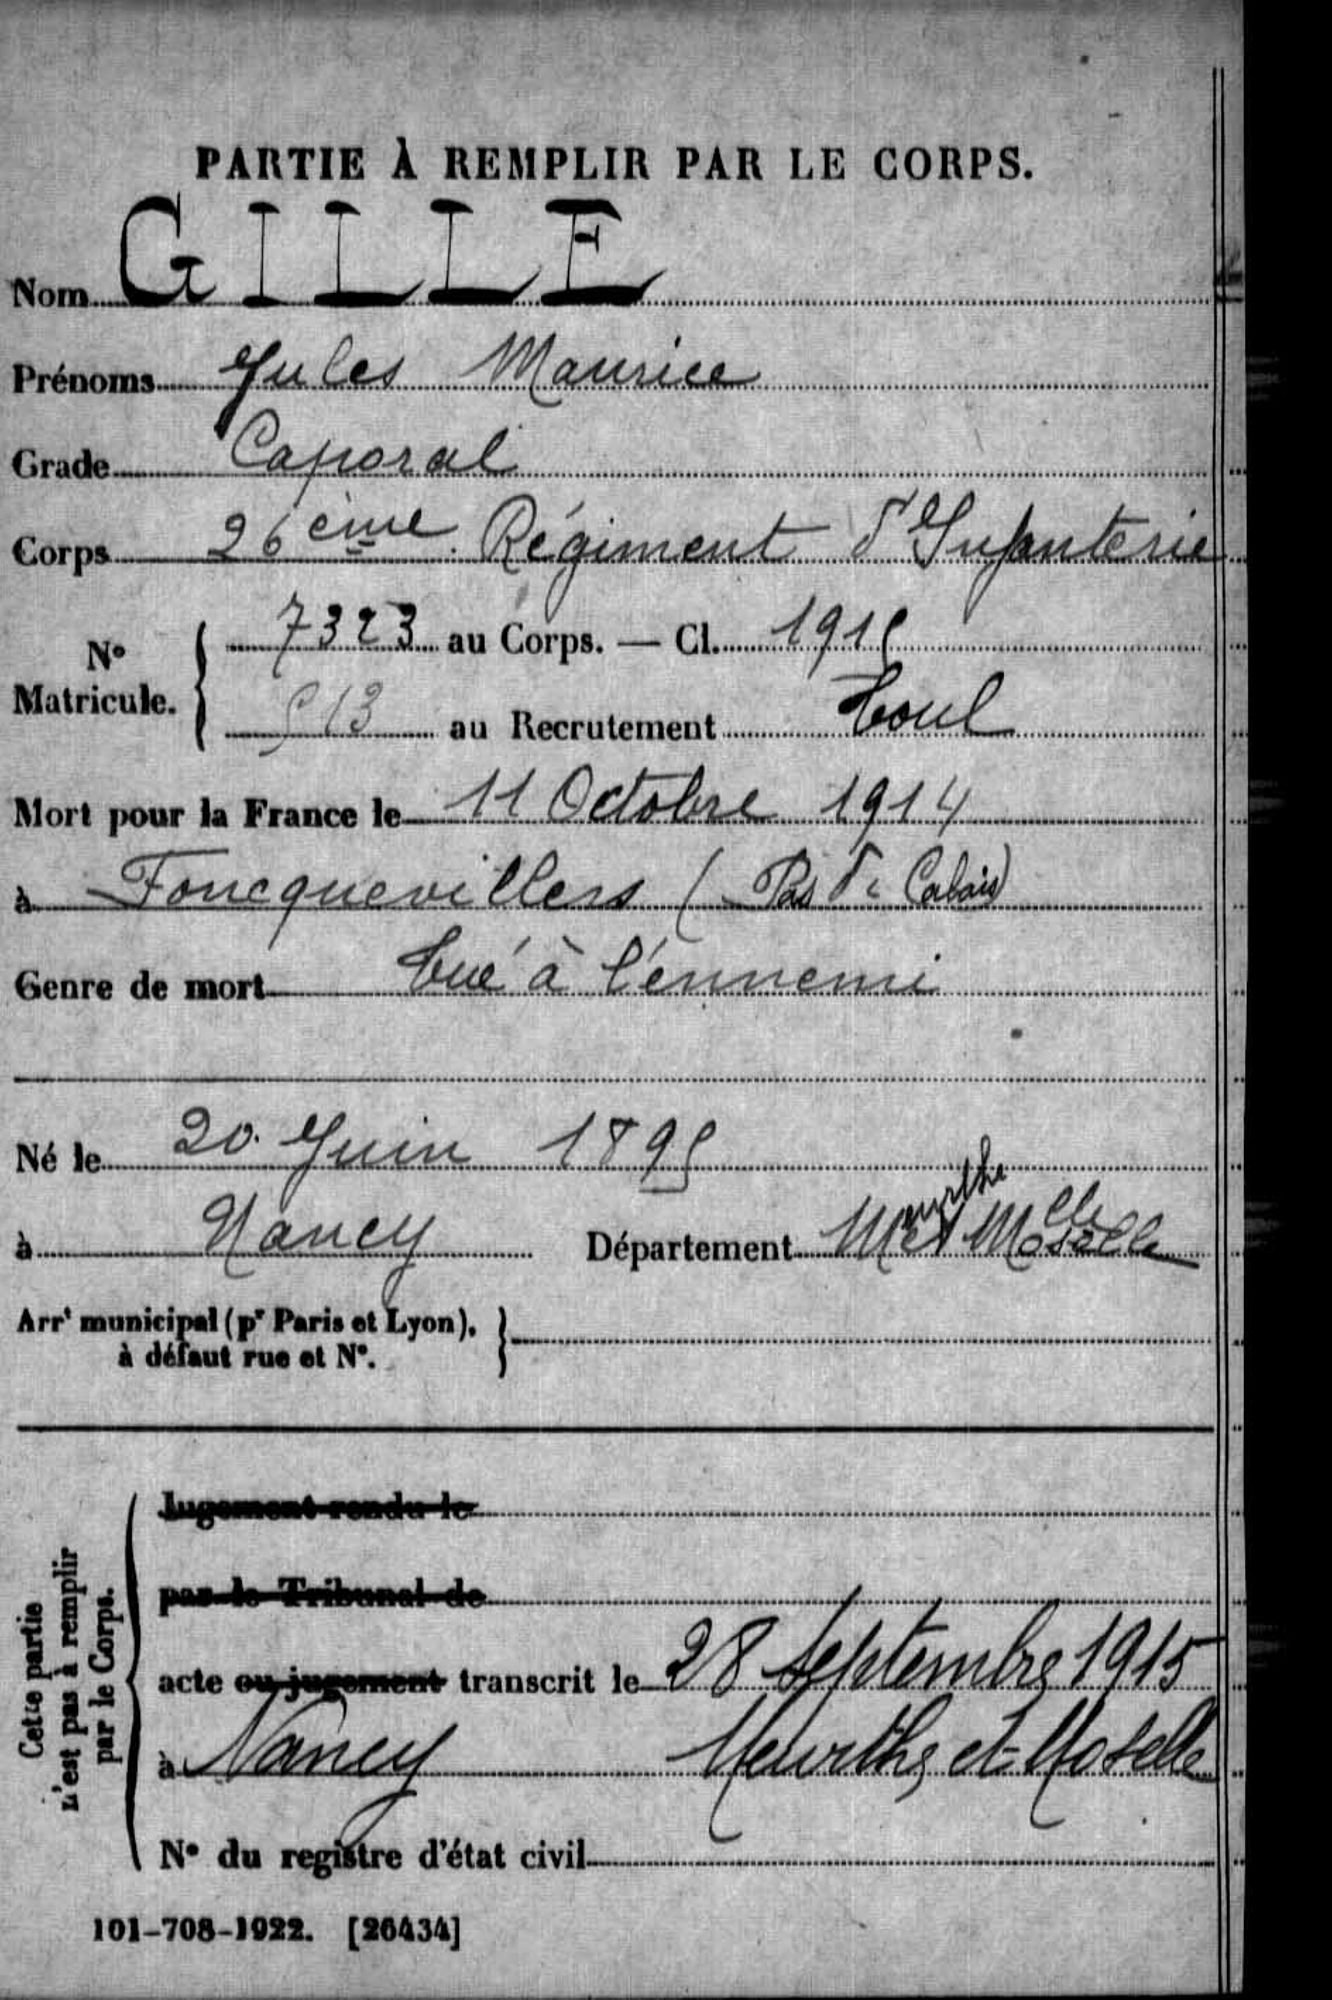 PARTIE À REMPLIR PAR LE CORPS.
Nom GILLE
Prénoms Jules Maurice
Grade Caporal
Corps 26ème Régiment d'Infanterie
N° Matricule. { 7323 au Corps. — Cl. 1915
513 au Recrutement Toul
Mort pour la France le 11 Octobre 1914
à Foncquevillers (Pas de Calais)
Genre de mort tué à l'ennemi
Né le 20 Juin 1895
à Nancy Département Meurthe et Moselle
Arrt municipal (pr Paris et Lyon), }
à défaut rue et N°.
Cette partie
n'est pas à remplir
par le Corps.
Jugement rendu le
par le Tribunal de
acte ou jugement transcrit le 28 Septembre 1915
à Nancy Meurthe et Moselle
N° du registre d'état civil
101-708-1922. [26434]